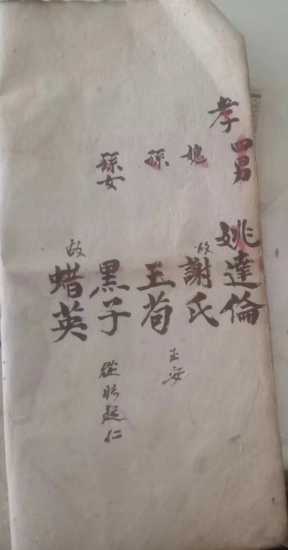 孝四男 姚達倫
媳 故 謝氏
孫 玉荀
玉安
孫女 黑子
故 蜡英